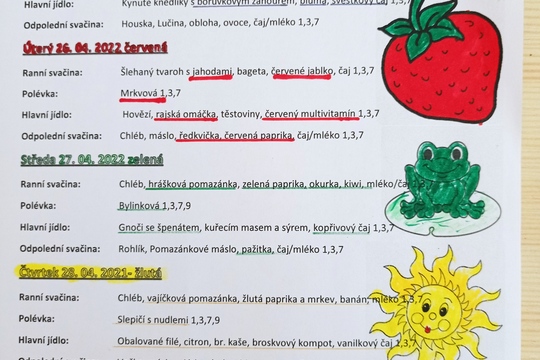 Hlavní jídlo: Kynuté knedlíky s borůvkovým zahourem, bluma, švestkový čaj 1,3,7
Odpolední svačina: Houska, Lučina, obloha, ovoce, čaj/mléko 1,3,7
Úterý 26. 04. 2022 červená
Ranní svačina: Šlehaný tvaroh s jahodami, bageta, červené jablko, čaj 1,3,7
Polévka: Mrkvová 1,3,7
Hlavní jídlo: Hovězí, rajská omáčka, těstoviny, červený multivitamín 1,3,7
Odpolední svačina: Chléb, máslo, ředkvička, červená paprika, čaj/mléko 1,3,7
Středa 27. 04. 2022 zelená
Ranní svačina: Chléb, hrášková pomazánka, zelená paprika, okurka, kiwi, mléko/čaj 1,3,7
Polévka: Bylinková 1,3,7,9
Hlavní jídlo: Gnoči se špenátem, kuřecím masem a sýrem, kopřivový čaj 1,3,7
Odpolední svačina: Rohlík, Pomazánkové máslo, pažitka, čaj/mléko 1,3,7
Čtvrtek 28. 04. 2021- žlutá
Ranní svačina: Chléb, vajíčková pomazánka, žlutá paprika a mrkev, banán, mléko 1,3,7
Polévka: Slepičí s nudlemi 1,3,7,9
Hlavní jídlo: Obalované filé, citron, br. kaše, broskvový kompot, vanilkový čaj 1,3,7